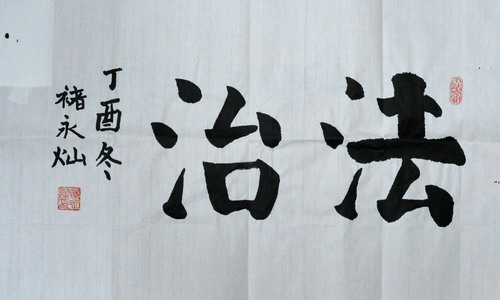 法治
丁酉冬
褚永灿